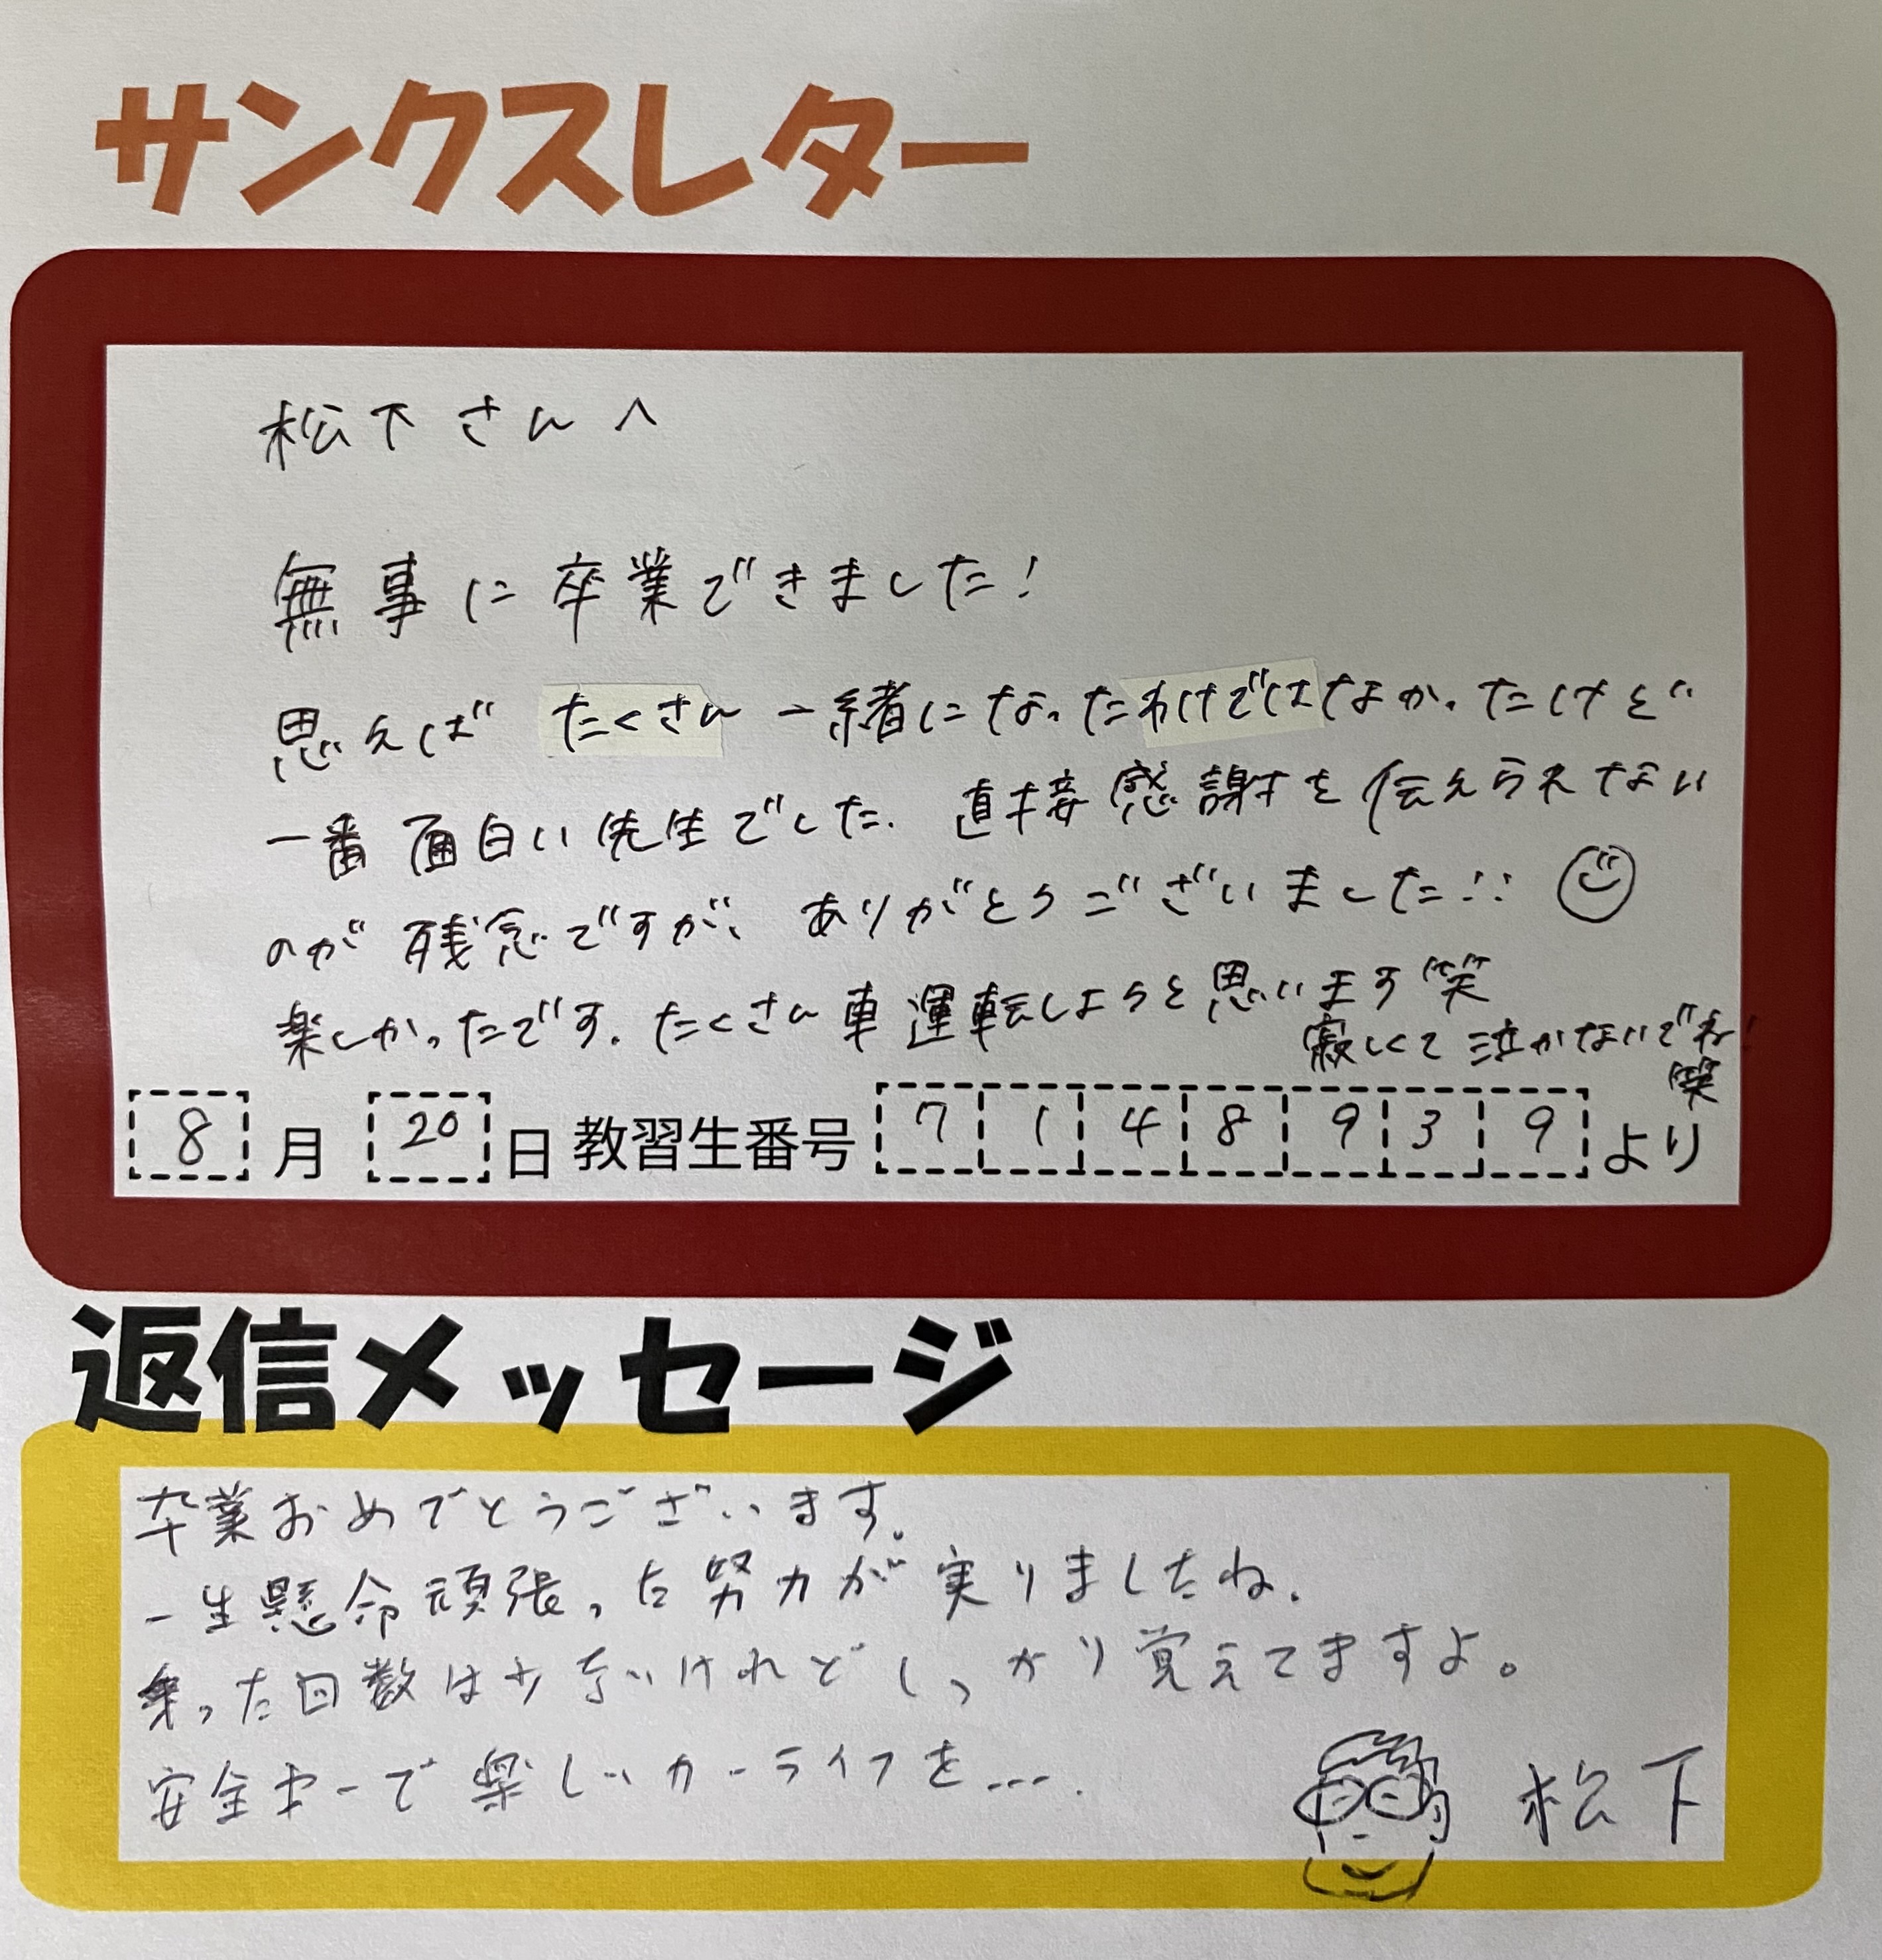 サンクスレター
松下さんへ
無事に卒業できました!
思えば たくさん 一緒になったわけではなかったけど
一番 面白い先生でした. 直接 感謝を伝えられない
のが 残念ですが、 ありがとうございました!! 
楽しかったです. たくさん車 運転しようと思います笑
寂しくて 泣かないでね!
笑
8月 20日 教習生番号 7148939 より
返信メッセージ
卒業おめでとうございます.
一生懸命頑張った努力が実りましたね.
乗った回数は少ないけれどしっかり覚えてますよ。
安全第一で楽しいカーライフを....
松下